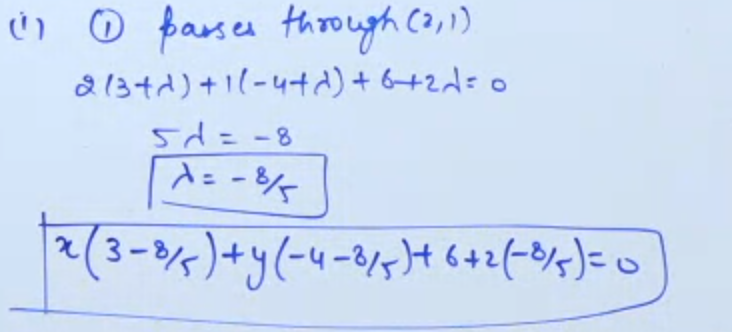 (i) ① passes through (2,1)
2(3+λ)+1(-4+λ)+6+2λ=0
5λ = -8
λ = -8/5
x(3-8/5)+y(-4-8/5)+6+2(-8/5)=0